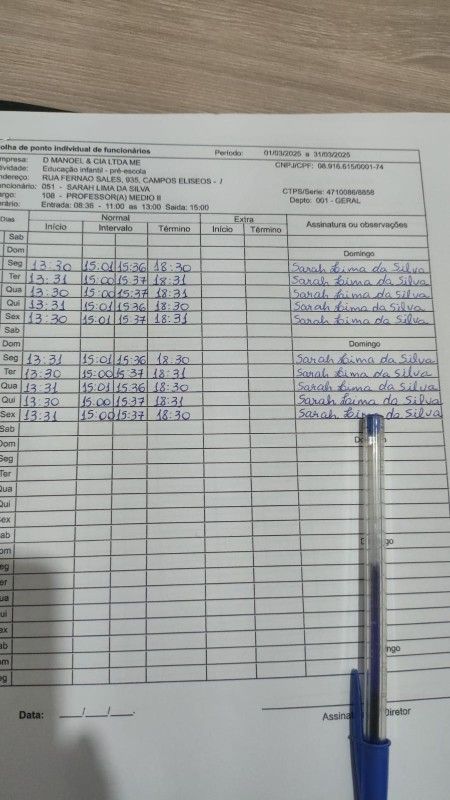 olha de ponto individual de funcionários Período: 01/03/2025 a 31/03/2025
mpresa: D MANOEL & CIA LTDA ME CNPJ/CPF: 08.916.615/0001-74
tividade: Educação infantil - pré-escola
ndereço: RUA FERNAO SALES, 935, CAMPOS ELISEOS - /
uncionário: 051 - SARAH LIMA DA SILVA CTPS/Serie: 4710086/8858
argo: 108 - PROFESSOR(A) MEDIO II Depto: 001 - GERAL
rário: Entrada: 08:36 - 11:00 as 13:00 Saída: 15:00
Dias Normal Extra Assinatura ou observações
Início Intervalo Término Início Término
Sab
Dom Domingo
Seg 13:30 15:01 15:36 18:30 Sarah Lima da Silva
Ter 13:31 15:00 15:37 18:31 Sarah Lima da Silva
Qua 13:30 15:00 15:37 18:31 Sarah Lima da Silva
Qui 13:31 15:01 15:36 18:30 Sarah Lima da Silva
Sex 13:30 15:01 15:37 18:31 Sarah Lima da Silva
Sab
Dom Domingo
Seg 13:31 15:01 15:36 18:30 Sarah Lima da Silva
Ter 13:30 15:00 15:37 18:31 Sarah Lima da Silva
Qua 13:31 15:01 15:36 18:30 Sarah Lima da Silva
Qui 13:30 15:00 15:37 18:31 Sarah Lima da Silva
Sex 13:31 15:00 15:37 18:30 Sarah Lima da Silva
Sab
Dom Do
Seg
Ter
Qua
Qui
ex
ab
om go
eg
er
ua
ui
ex
ab
om ngo
eg
Data: __/__/__. Assina Diretor